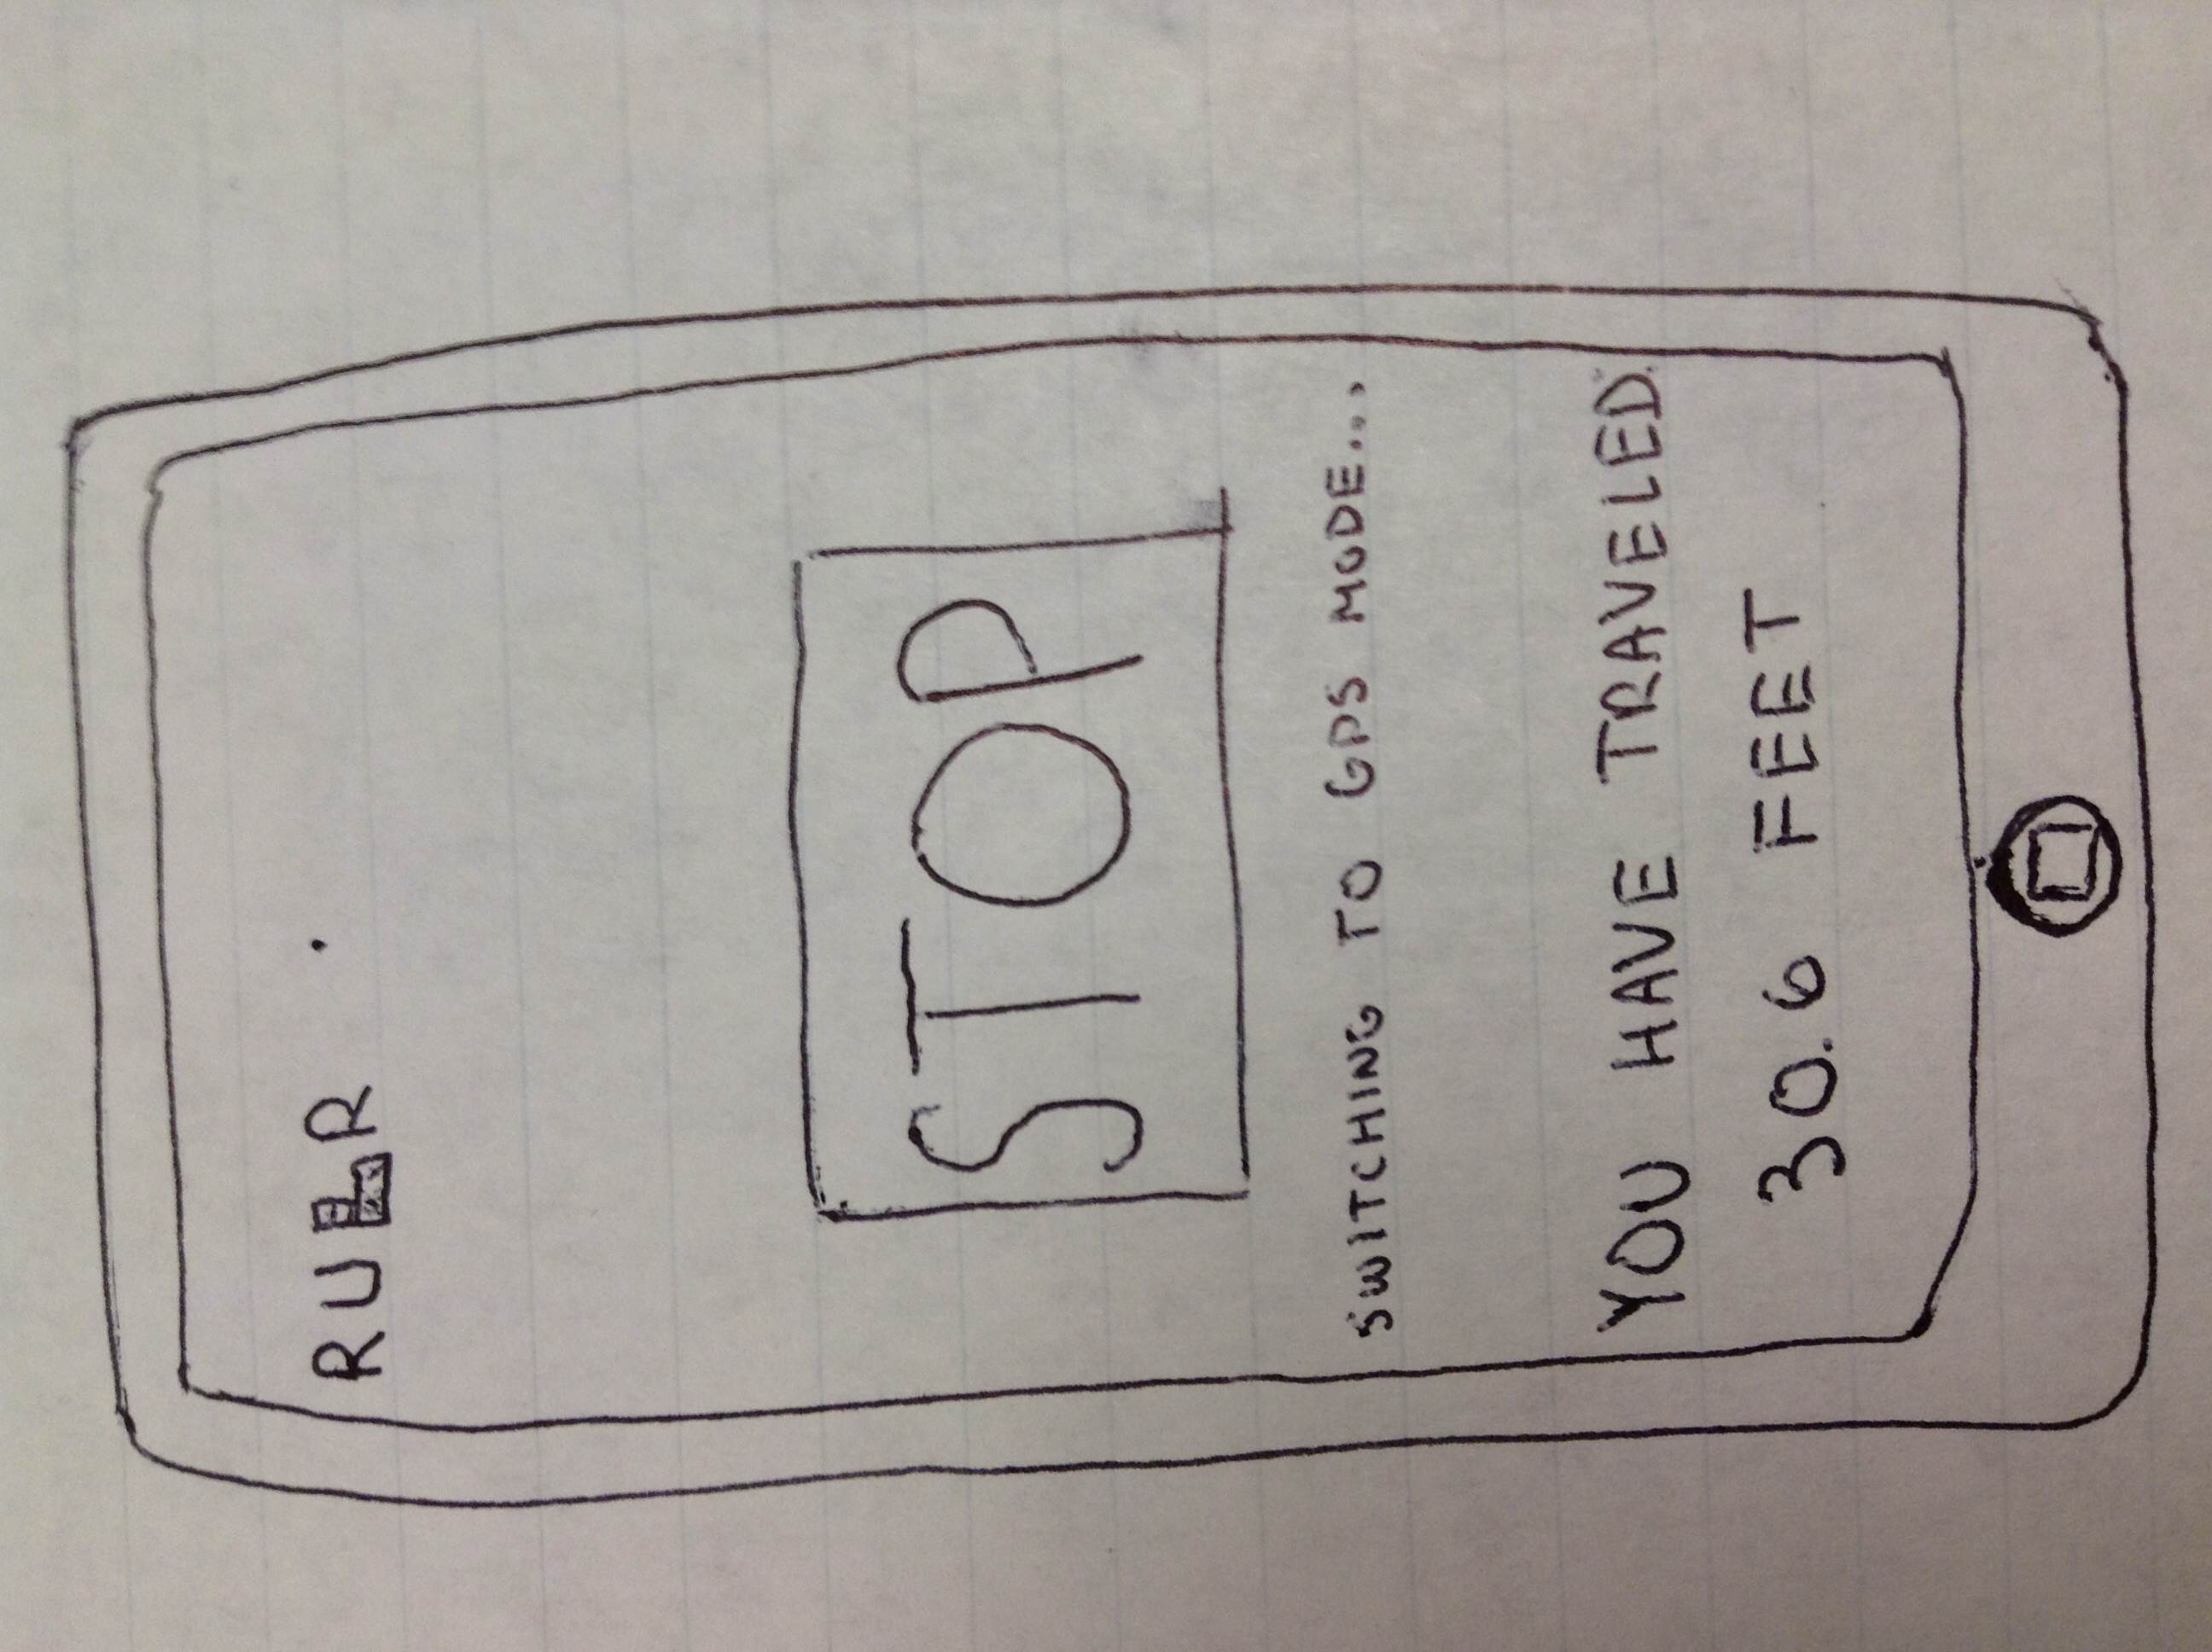 RULR
STOP
SWITCHING TO GPS MODE...
YOU HAVE TRAVELED
30.6 FEET